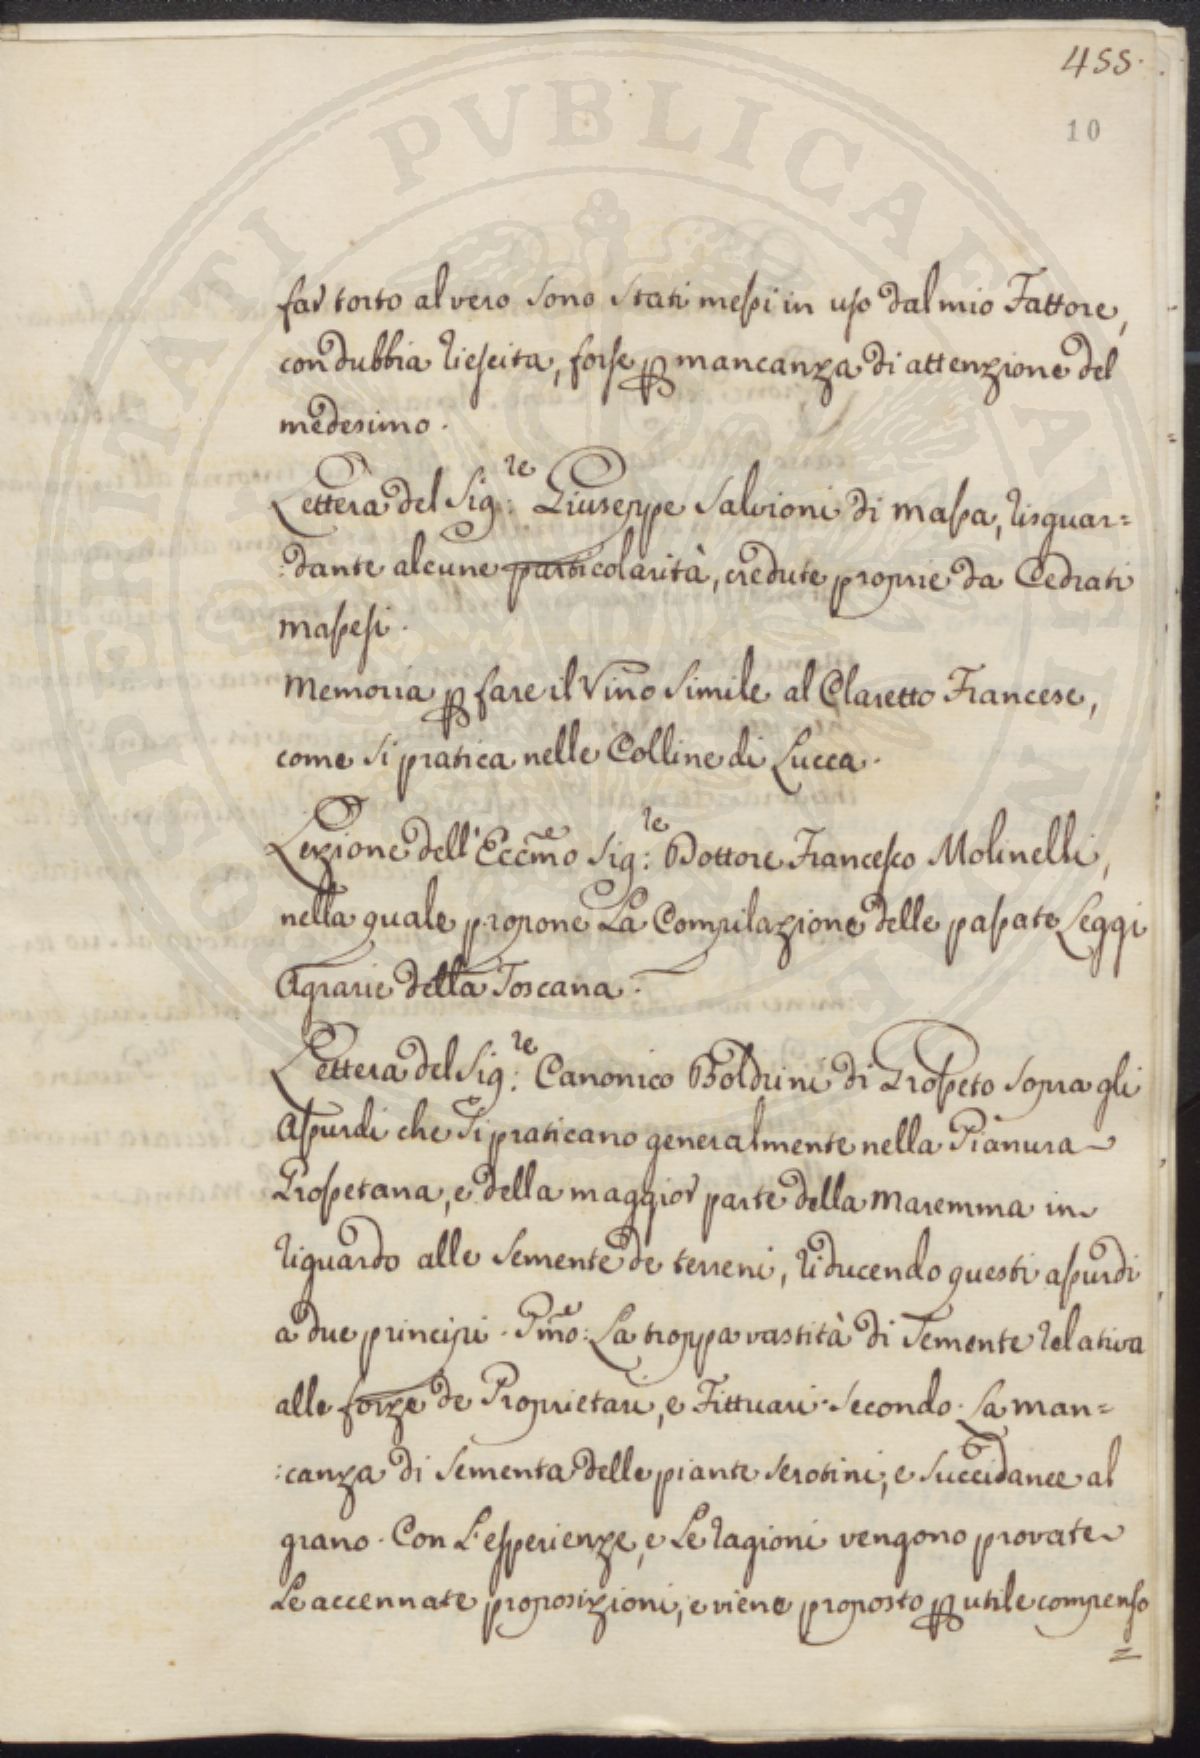 455.
10
far torto al vero sono stati messi in uso dal mio Fattore,
con dubbia riescita, forse p mancanza di attenzione del
medesimo.
Lettera del Sig:re Giuseppe Salvioni di Massa, risguar=
:dante alcune particolarità, credute proprie da Cedrati
Massesi.
Memoria p fare il Vino simile al Claretto Francese,
come si pratica nelle Colline di Lucca.
Lezione dell'Eccmo Sig:re Dottore Francesco Molinelli,
nella quale propone La Compilazione delle passate Leggi
Agrarie della Toscana.
Lettera del Sig:re Canonico Boldrini di Grosseto sopra gli
assurdi che si praticano generalmente nella Pianura
Grossetana, e della maggior parte della Maremma in
riguardo alle semente de terreni, riducendo questi assurdi
a due principi. Pmo: La troppa vastità di Semente relativa
alle forze de Proprietari, e Fittuari. Secondo. La man=
:canza di sementa delle piante serotini, e succidanee al
grano. Con L'esperienze, e Le ragioni vengono provate
Le accennate proposizioni, e viene proposto p utile compenso
=
PROSPERITATI PVBLICAE AVGENDAE